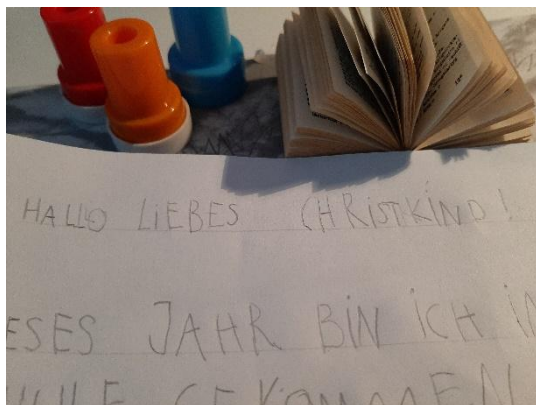 HALLO LiEBES CHRiSTKiND!
ESES JAHR BiN iCH iN
HULE GEKOMMEN